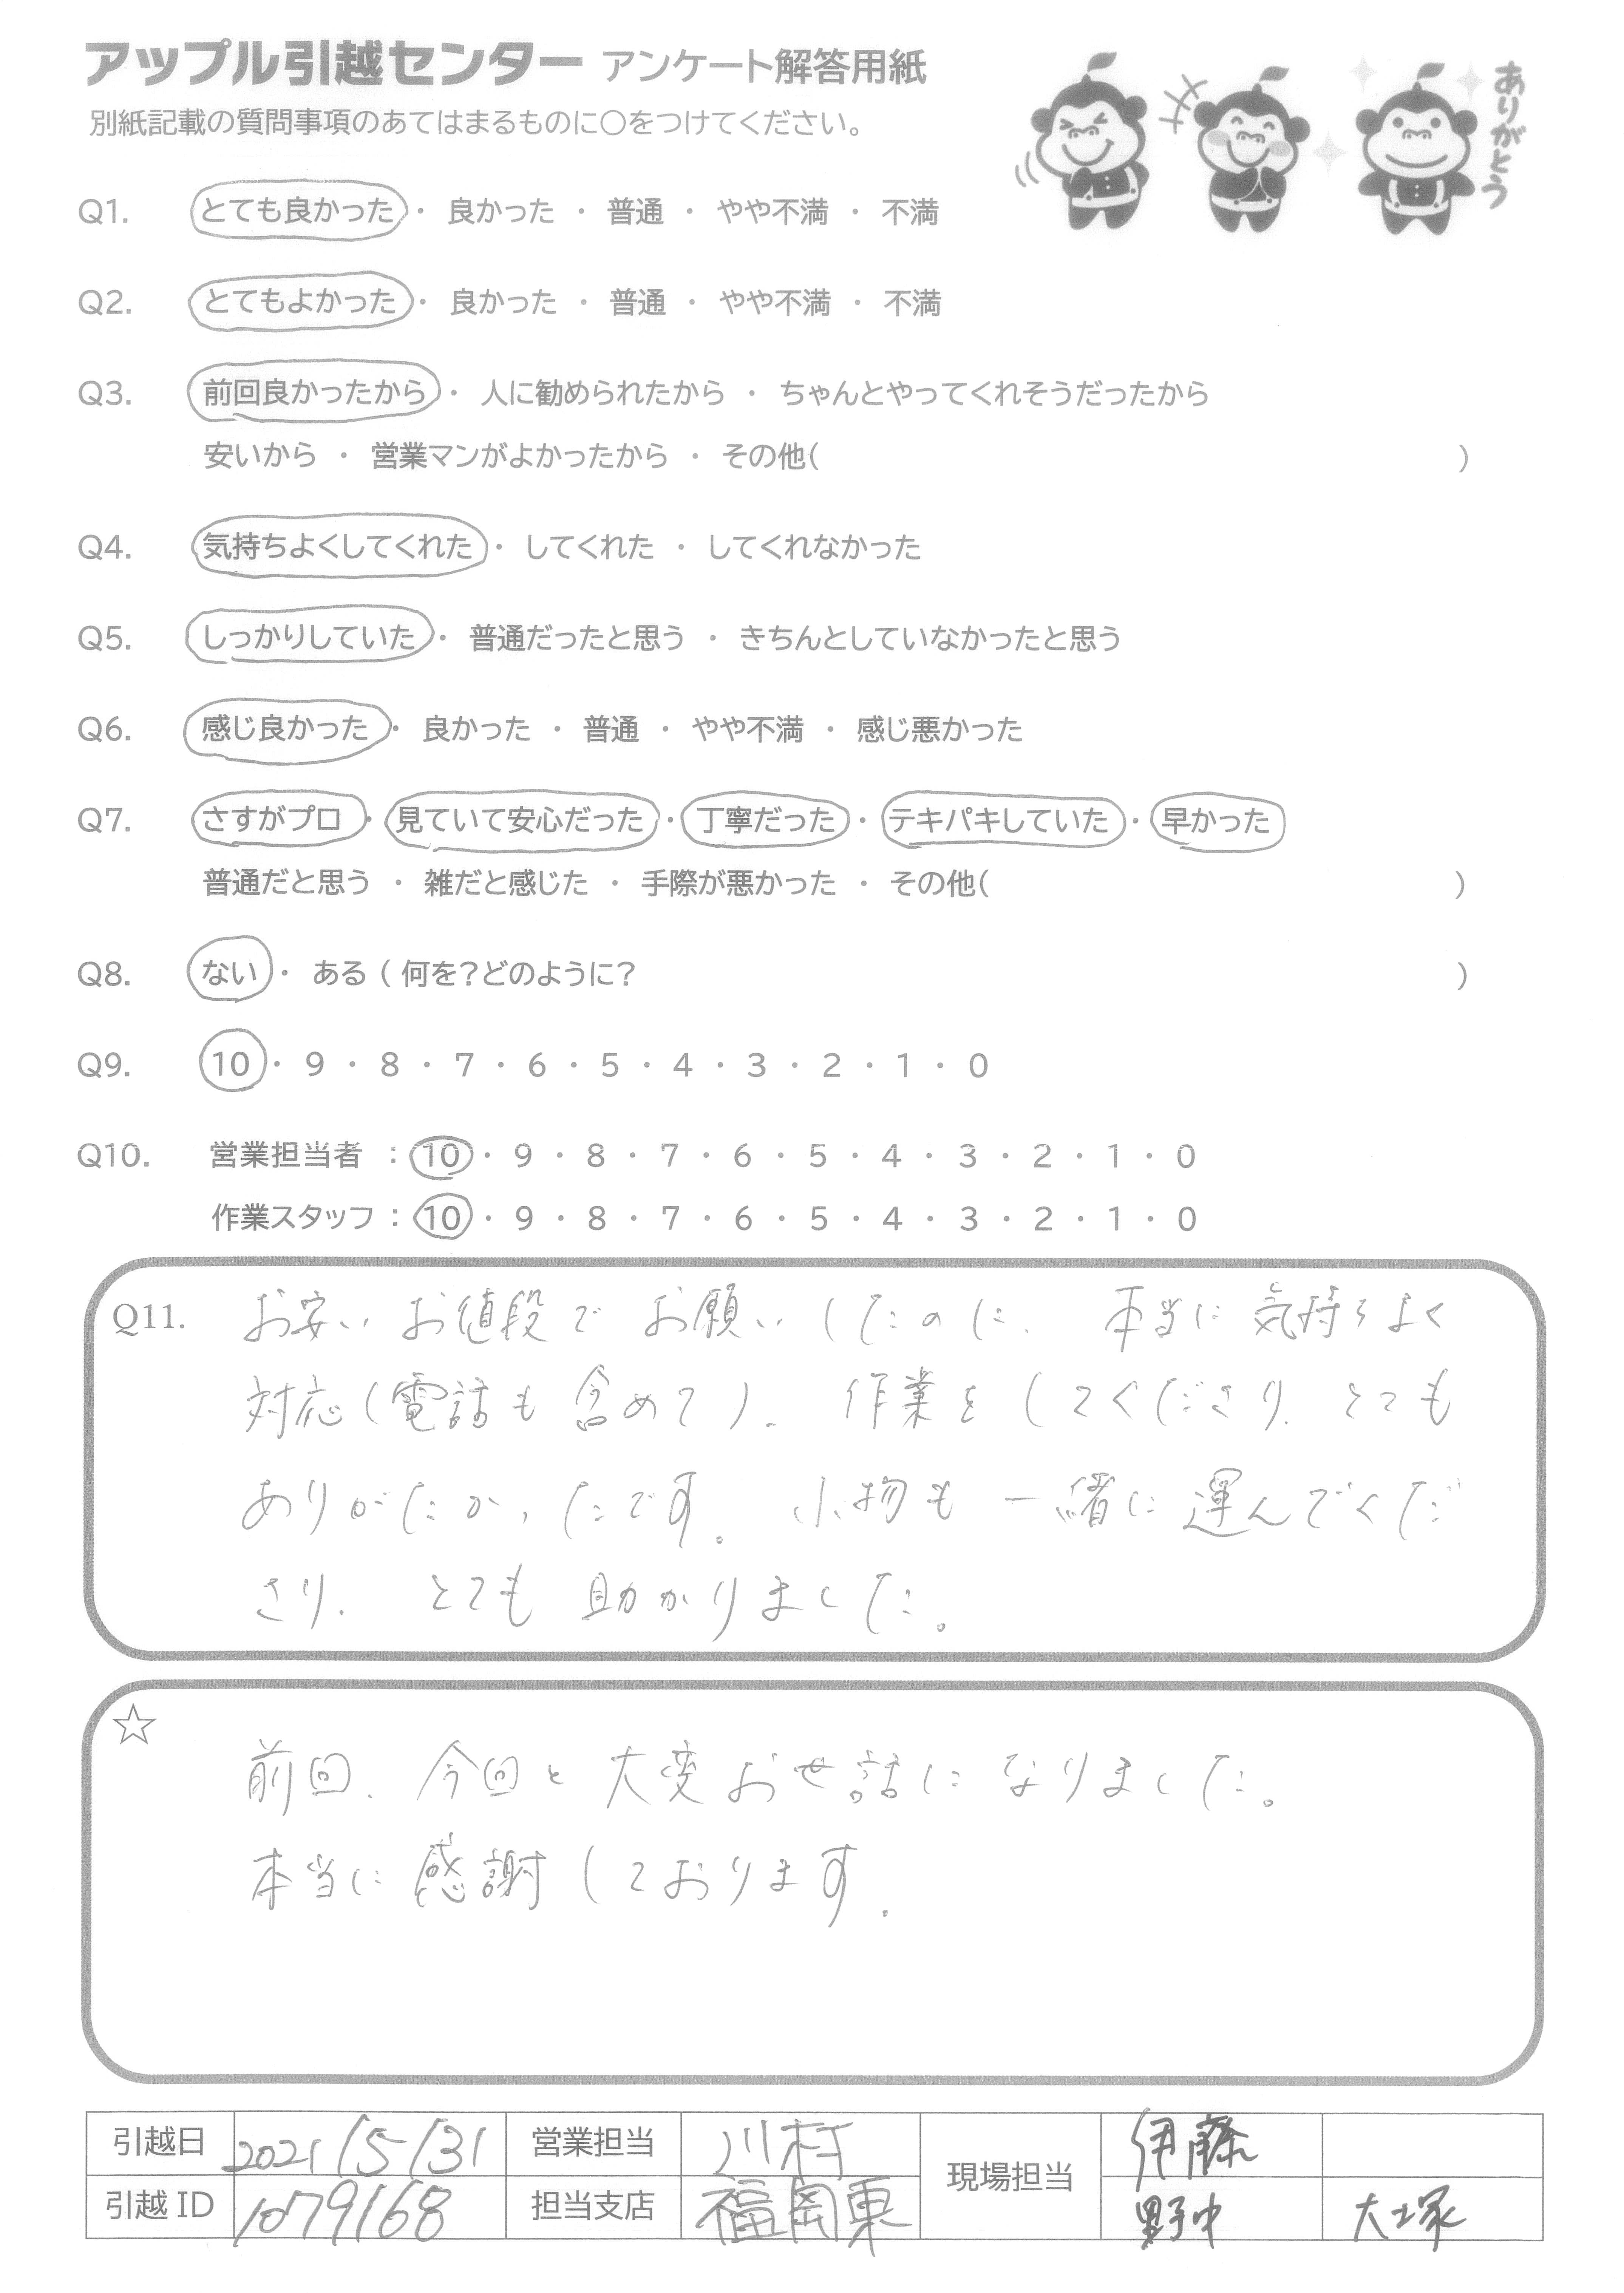 アップル引越センター アンケート解答用紙
別紙記載の質問事項のあてはまるものに○をつけてください。
ありがとう
Q1. とても良かった ・ 良かった ・ 普通 ・ やや不満 ・ 不満
Q2. とてもよかった ・ 良かった ・ 普通 ・ やや不満 ・ 不満
Q3. 前回良かったから ・ 人に勧められたから ・ ちゃんとやってくれそうだったから
安いから ・ 営業マンがよかったから ・ その他( )
Q4. 気持ちよくしてくれた ・ してくれた ・ してくれなかった
Q5. しっかりしていた ・ 普通だったと思う ・ きちんとしていなかったと思う
Q6. 感じ良かった ・ 良かった ・ 普通 ・ やや不満 ・ 感じ悪かった
Q7. さすがプロ ・ 見ていて安心だった ・ 丁寧だった ・ テキパキしていた ・ 早かった
普通だと思う ・ 雑だと感じた ・ 手際が悪かった ・ その他( )
Q8. ない ・ ある ( 何を?どのように? )
Q9. 10 ・ 9 ・ 8 ・ 7 ・ 6 ・ 5 ・ 4 ・ 3 ・ 2 ・ 1 ・ 0
Q10. 営業担当者 : 10 ・ 9 ・ 8 ・ 7 ・ 6 ・ 5 ・ 4 ・ 3 ・ 2 ・ 1 ・ 0
作業スタッフ : 10 ・ 9 ・ 8 ・ 7 ・ 6 ・ 5 ・ 4 ・ 3 ・ 2 ・ 1 ・ 0
Q11. お安いお値段でお願いしたのに、本当に気持ちよく
対応(電話も含めて)、作業をしてくださり、とても
ありがたかったです。小物も一緒に運んでくだ
さり、とても助かりました。
☆
前回、今回と大変お世話になりました。
本当に感謝しております.
引越日 2021/5/31 営業担当 川村 現場担当 伊藤
引越ID 1079168 担当支店 福岡東 野中 大塚